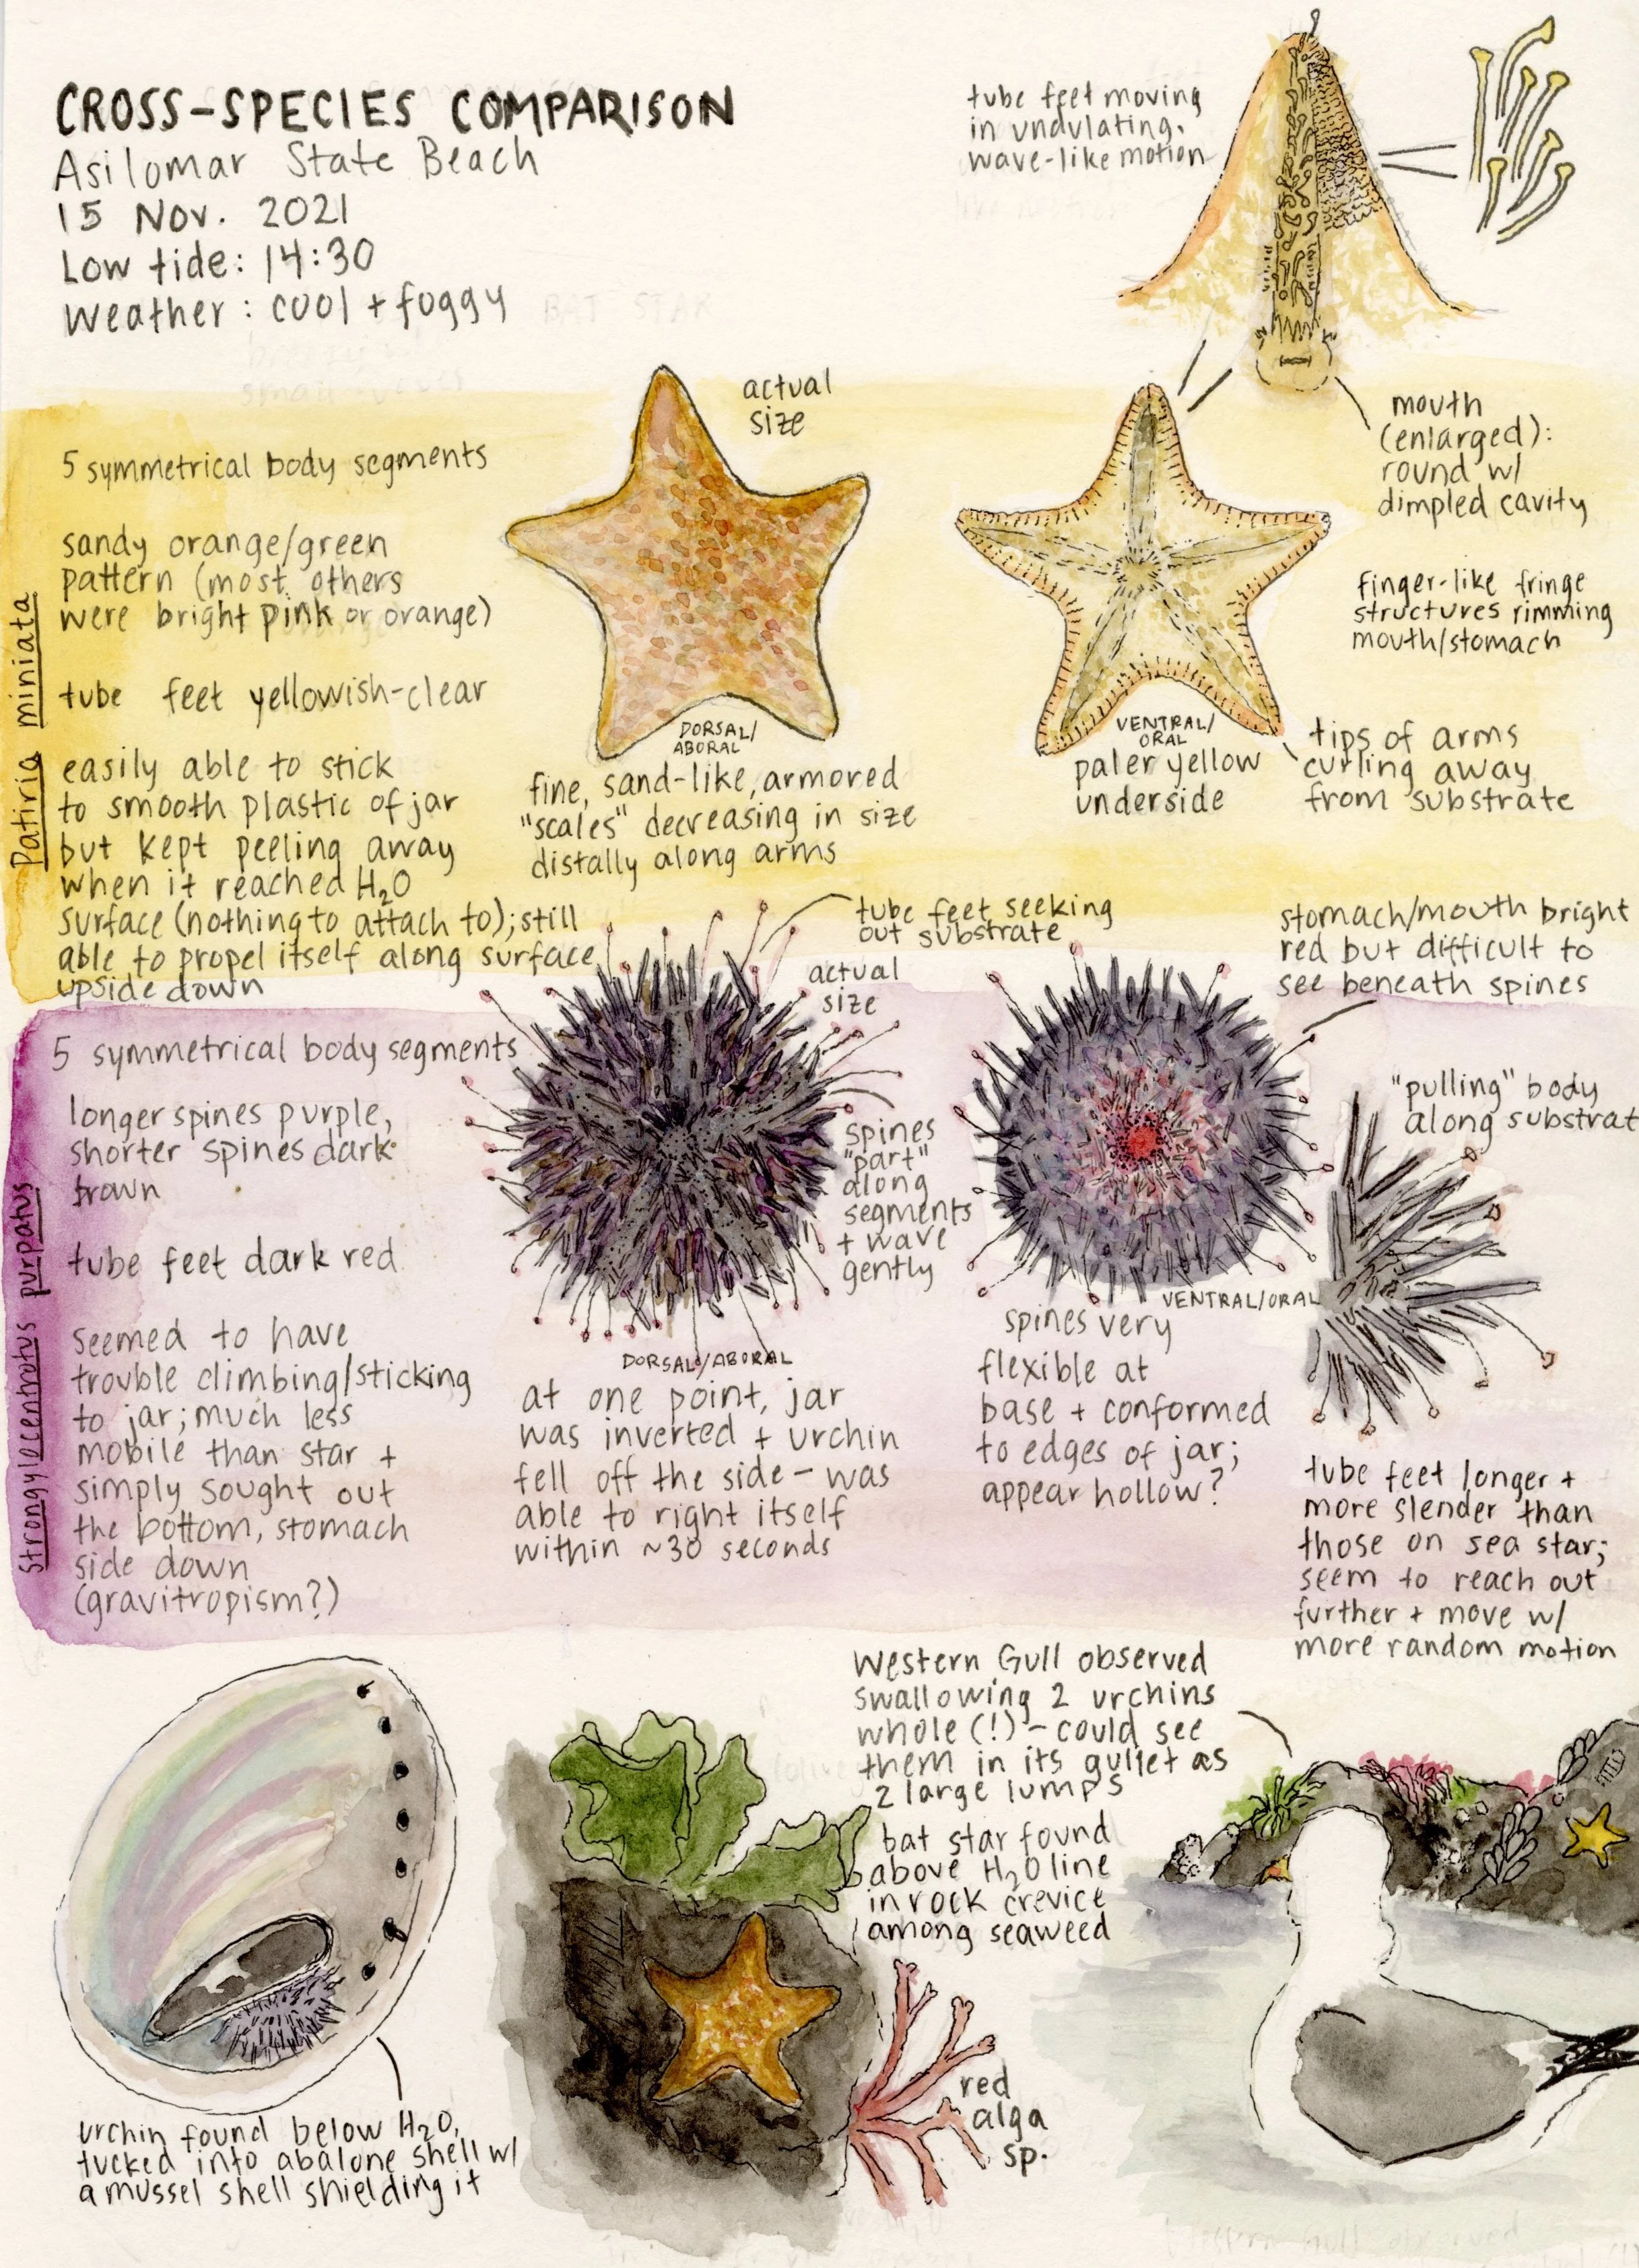 CROSS-SPECIES COMPARISON
Asilomar State Beach
15 Nov. 2021
Low tide: 14:30
Weather: cool + foggy
tube feet moving
in undulating,
wave-like motion
mouth
(enlarged):
round w/
dimpled cavity
finger-like fringe
structures rimming
mouth/stomach
actual
size
Patiria miniata
5 symmetrical body segments
sandy orange/green
pattern (most others
were bright pink or orange)
tube feet yellowish-clear
easily able to stick
to smooth plastic of jar
but kept peeling away
when it reached H₂O
surface (nothing to attach to); still
able to propel itself along surface
upside down
DORSAL/
ABORAL
fine, sand-like, armored
"scales" decreasing in size
distally along arms
VENTRAL/
ORAL
paler yellow
underside
tips of arms
curling away
from substrate
tube feet seeking
out substrate
actual
size
stomach/mouth bright
red but difficult to
see beneath spines
Strongylocentrotus purpatus
5 symmetrical body segments
longer spines purple,
shorter spines dark
brown
tube feet dark red
seemed to have
trouble climbing/sticking
to jar; much less
mobile than star +
simply sought out
the bottom, stomach
side down
(gravitropism?)
spines
"part"
along
segments
+ wave
gently
DORSAL/ABORAL
at one point, jar
was inverted + urchin
fell off the side - was
able to right itself
within ~30 seconds
VENTRAL/ORAL
spines very
flexible at
base + conformed
to edges of jar;
appear hollow?
"pulling" body
along substrat
tube feet longer +
more slender than
those on sea star;
seem to reach out
further + move w/
more random motion
Western Gull observed
swallowing 2 urchins
whole (!) - could see
them in its gullet as
2 large lumps
bat star found
above H₂O line
in rock crevice
among seaweed
red
alga
sp.
urchin found below H₂O,
tucked into abalone shell w/
a mussel shell shielding it